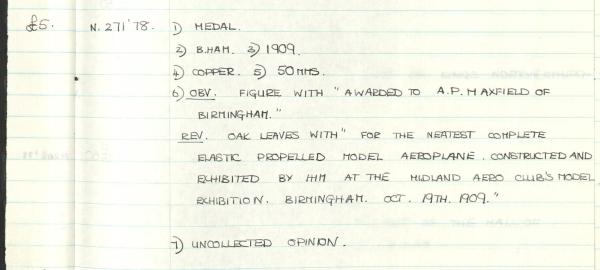 £5. N. 271'78. 1) MEDAL.
2) B.HAM. 3) 1909.
4) COPPER. 5) 50 MMS.
6) OBV. FIGURE WITH "AWARDED TO A.P. MAXFIELD OF
BIRMINGHAM."
REV. OAK LEAVES WITH "FOR THE NEATEST COMPLETE
ELASTIC PROPELLED MODEL AEROPLANE. CONSTRUCTED AND
EXHIBITED BY HIM AT THE MIDLAND AERO CLUB'S MODEL
EXHIBITION. BIRMINGHAM. OCT. 19TH. 1909."
7) UNCOLLECTED OPINION.